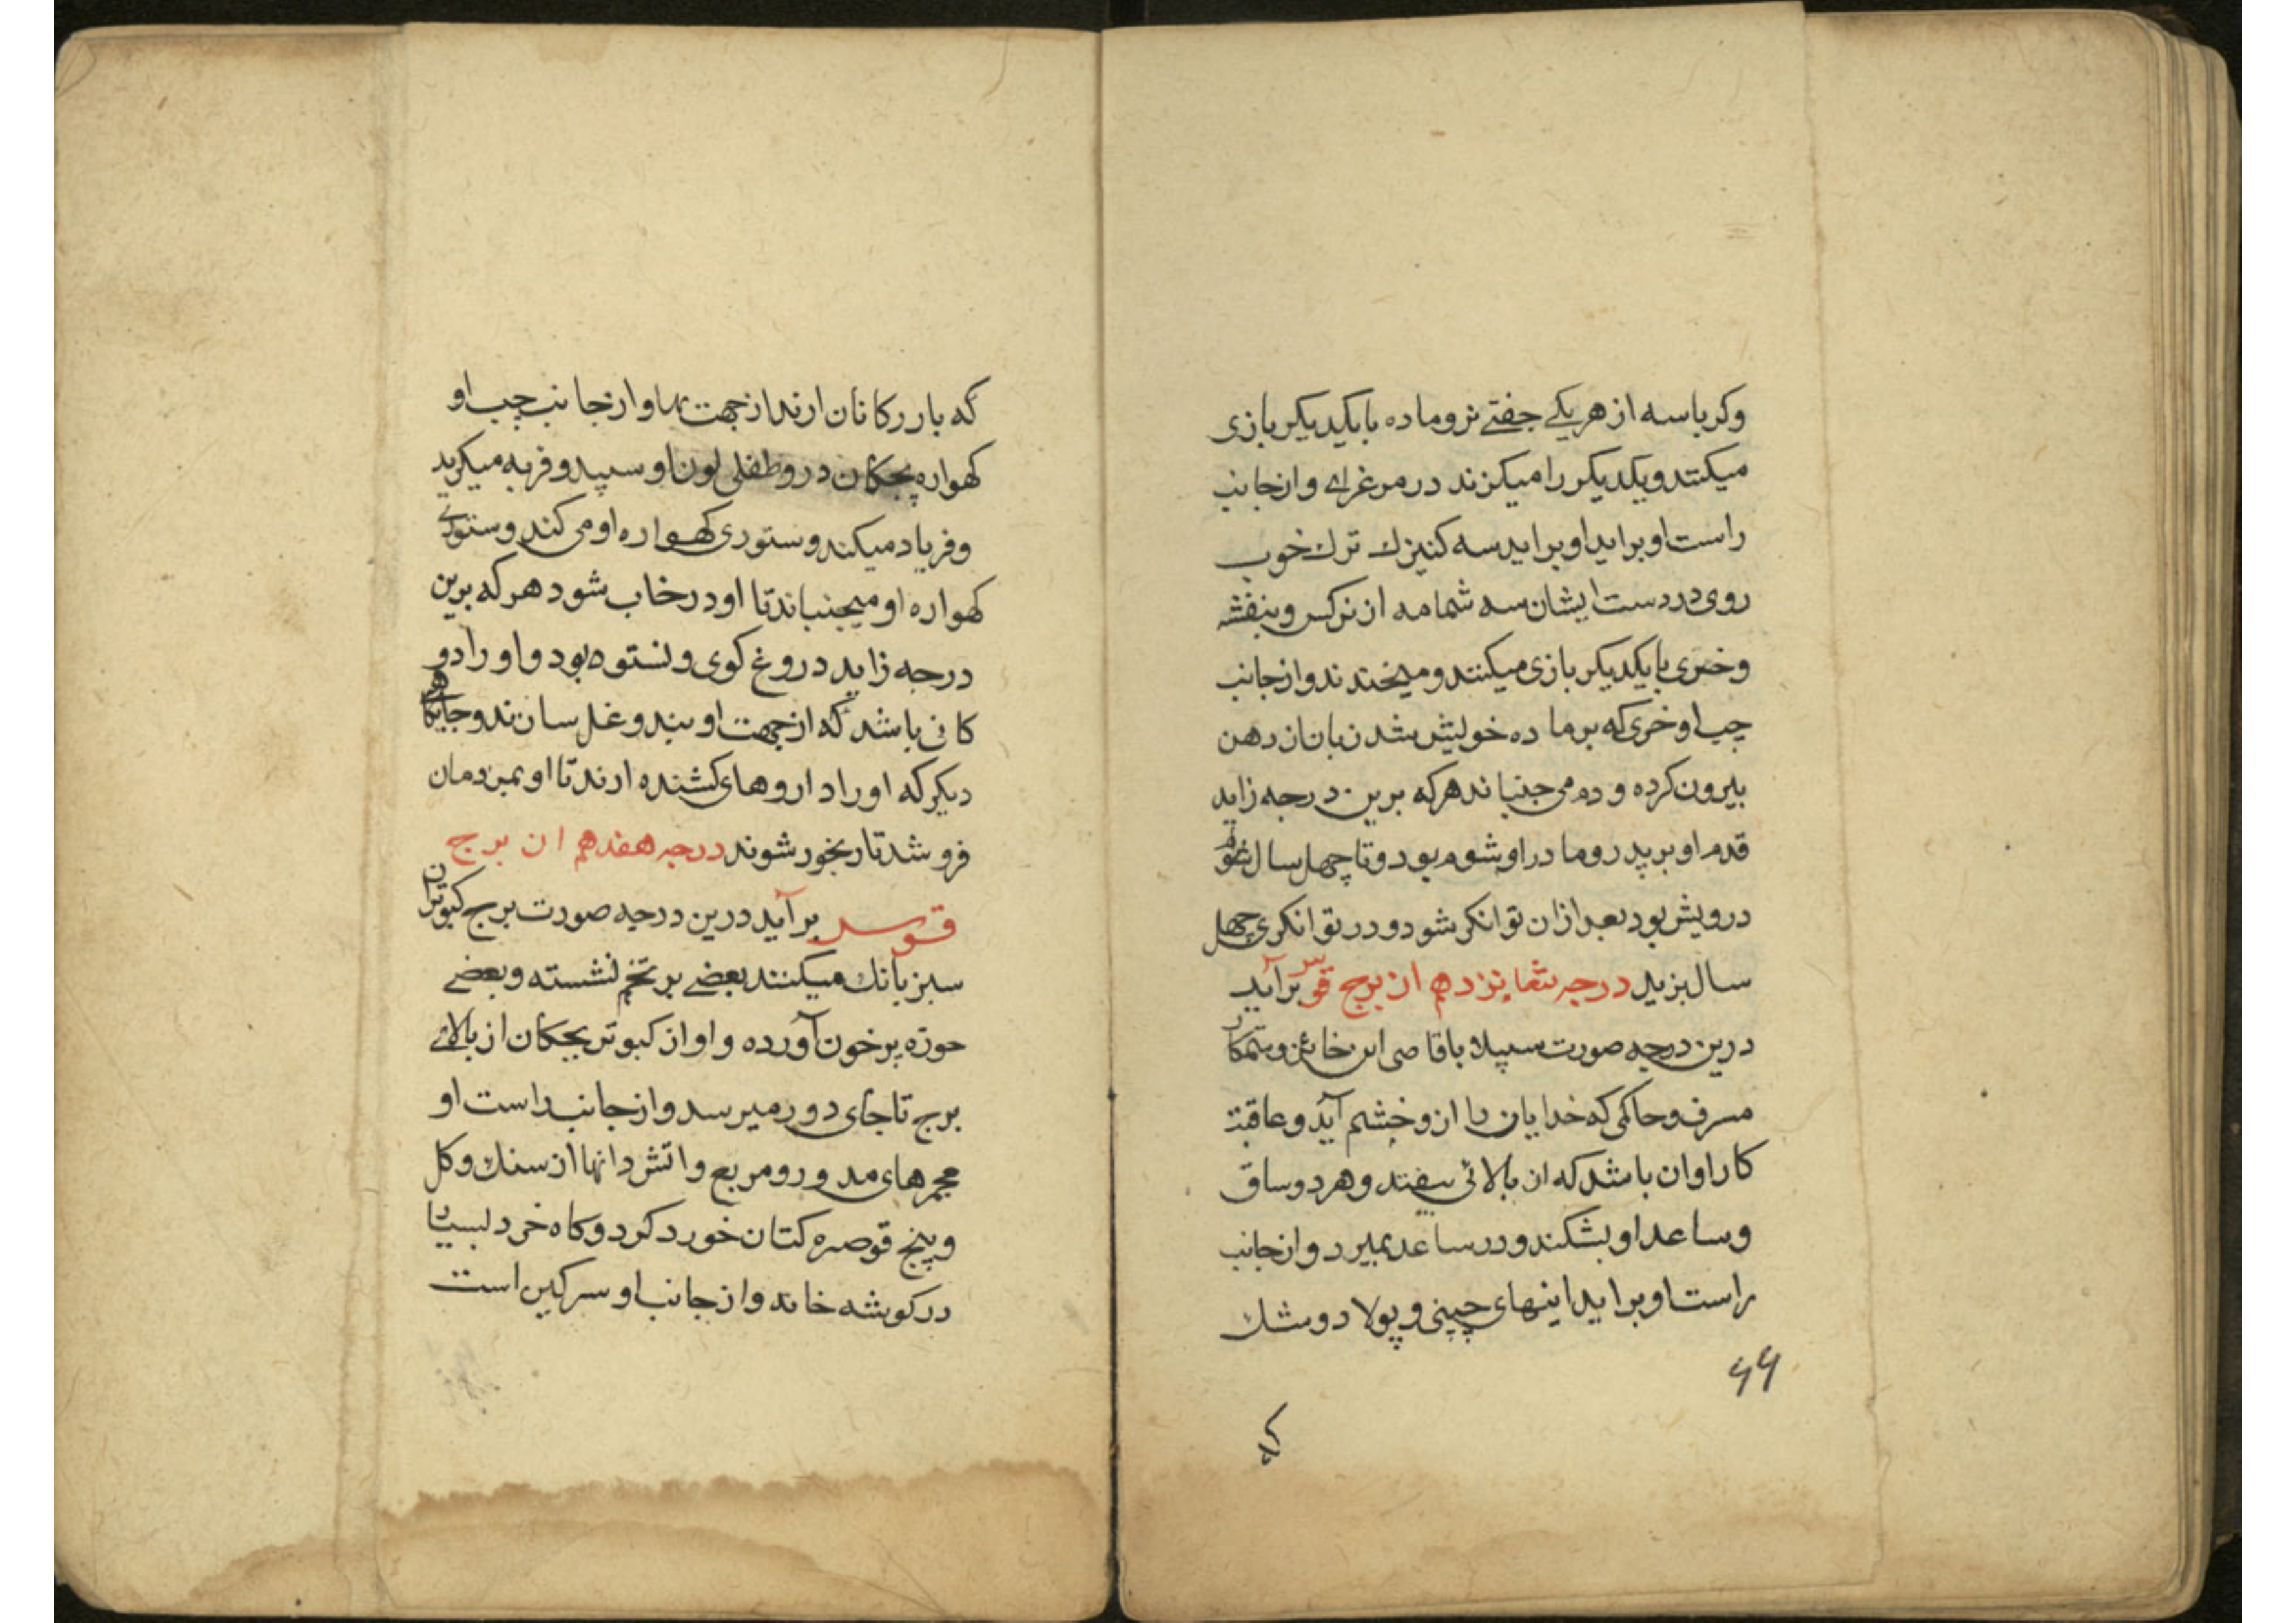 وکرباسه از هر یکی جفتی نر و ماده با یکدیکر بازی
میکنند و یکدیکر را میکزند در مرغزاے و از جانب
راست او براید او براید سه کنیزك ترك خوب
روی در دست ایشان سه شمامه از نرکس و بنفشه
و خیری با یکدیکر بازی میکنند و میخندند و از جانب
چپ او خری که بر ماده خویش شد زبان از دهن
بیرون کرده و دم می جنباند هر که برین درجه زاید
قدم او بر پدر و مادر او شوم بود و تا چهل سال
درویش بود بعد ازان توانکر شود و در توانکری چهل
سال بزید درجه شانزدهم از برج قوس برآید
درین درجه صورت سپید با قاضی خاین و ستمکار
مسرف و حاکمی که خدایان را ازو خشم آید و عاقبت
کار او ان باشد که از بالائی بیفتد و هر دو ساق
و ساعد او بشکند و در ساعد بمیرد و از جانب
راست او براید اینهای چینی و پولاد و مشك
۶۶
که
که باررکانان ارند از جهت بها و از جانب چپ او
کهواره بچکان درو طفلی لون او سپید و فربه میکرید
و فریاد میکند و ستوری کهواره او می کند و ستوری
کهواره او میجنباند تا او در خاب شود هر که برین
درجه زاید دروغ کوی و نستوه بود و او را دو
کانی باشد که از جهت او بند و غل سازند و جایکاهی
دیکر که او را داروهای کشنده ارند تا او بمردمان
فروشد تا رنجور شوند درجه هفدهم از برج
قوس برآید درین درجه صورت برج کبوتران
سبز بانك میکنند بعضے بر تخم نشسته و بعضے
حوزه برخون آورده و اواز کبوتر بچکان از بالاے
برج تا جای دور میرسد و از جانب راست او
مجمرهای مدور و مربع و اتش دانها از سنك و کل
و پنج قوصره کتان خورد کرد و کاه خرد بسیار
در کوشه خانه و از جانب او سرکین است